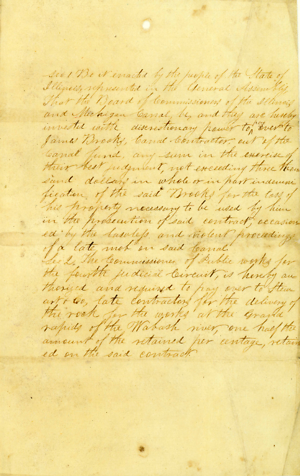 Sec 1 Be it enacted by the people of the State of
Illinois, represented in the General Assembly
That the Board of Commissioners of the Illinois
and Michigan Canal be, and they are hereby
invested with discretionary power to pay over to
James Brooks, Canal Contractor, out of the
Canal fund, any sum in the exercise of
their best judgment, not exceeding three thou
sand dollars, in whole or in part indemni
fication of the said Brooks for the loss of
his property necessary to be used by him
in the prosecution of said contract, occasion
ed by the lawless and violent proceedings
of a late mob on said Canal
Sec 2. The Commissioner of Public works for
the fourth judicial Circuit, is hereby au
thorized and required to pay over to
& Co, late Contractors for the delivery of
the rock for the works at the Grand
rapids of the Wabash river, one half the
amount of the retained per centage, retain
ed on the said contract